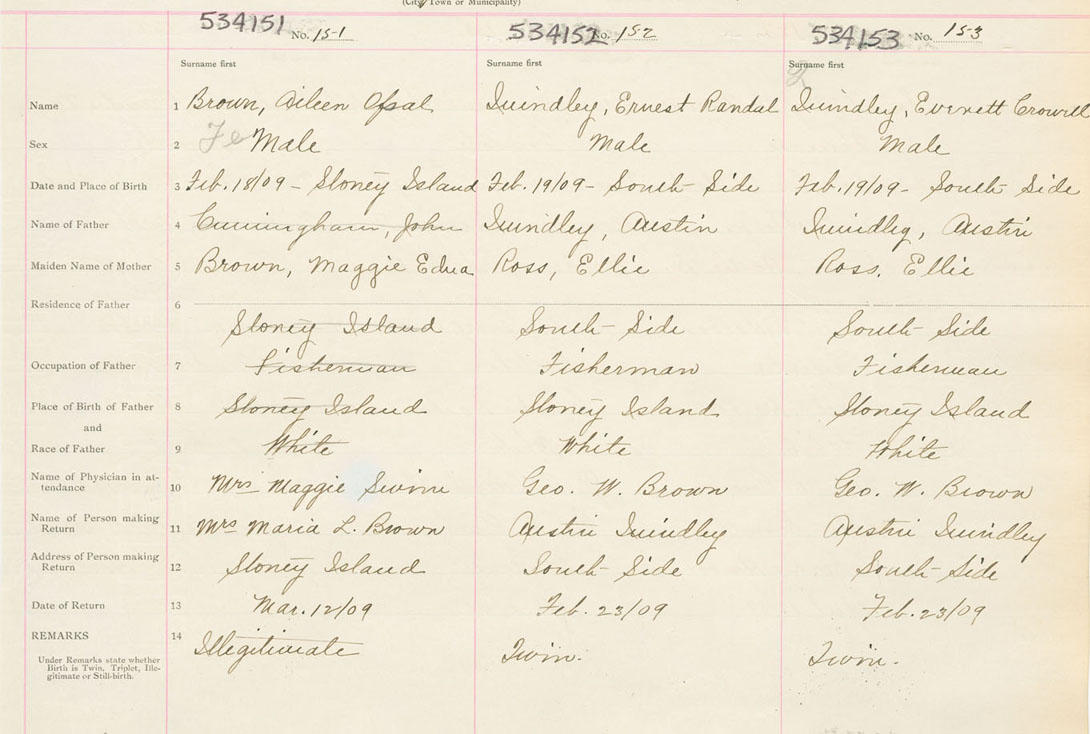 (City, Town or Municipality)
534151 No. 15-1 534152 No. 152 534153 No. 15-3
Surname first Surname first Surname first
Name 1 Brown, Aileen Opal Quindley, Ernest Randal Quindley, Everett Crowell
Sex 2 Fe Male Male Male
Date and Place of Birth 3 Feb. 18/09 - Stoney Island Feb. 19/09 - South Side Feb. 19/09 - South Side
Name of Father 4 Cunningham, John Quindley, Austin Quindley, Austin
Maiden Name of Mother 5 Brown, Maggie Edna Ross, Ellie Ross, Ellie
Residence of Father 6
Stoney Island South Side South Side
Occupation of Father 7 Fisherman Fisherman Fisherman
Place of Birth of Father 8 Stoney Island Stoney Island Stoney Island
and
Race of Father 9 White White White
Name of Physician in at-
tendance 10 Mrs Maggie Swim Geo. W. Brown Geo. W. Brown
Name of Person making
Return 11 Mrs Maria L. Brown Austin Quindley Austin Quindley
Address of Person making
Return 12 Stoney Island South Side South Side
Date of Return 13 Mar. 12/09 Feb. 23/09 Feb. 23/09
REMARKS 14 Illegitimate Twin. Twin.
Under Remarks state whether
Birth is Twin, Triplet, Ille-
gitimate or Still-birth.